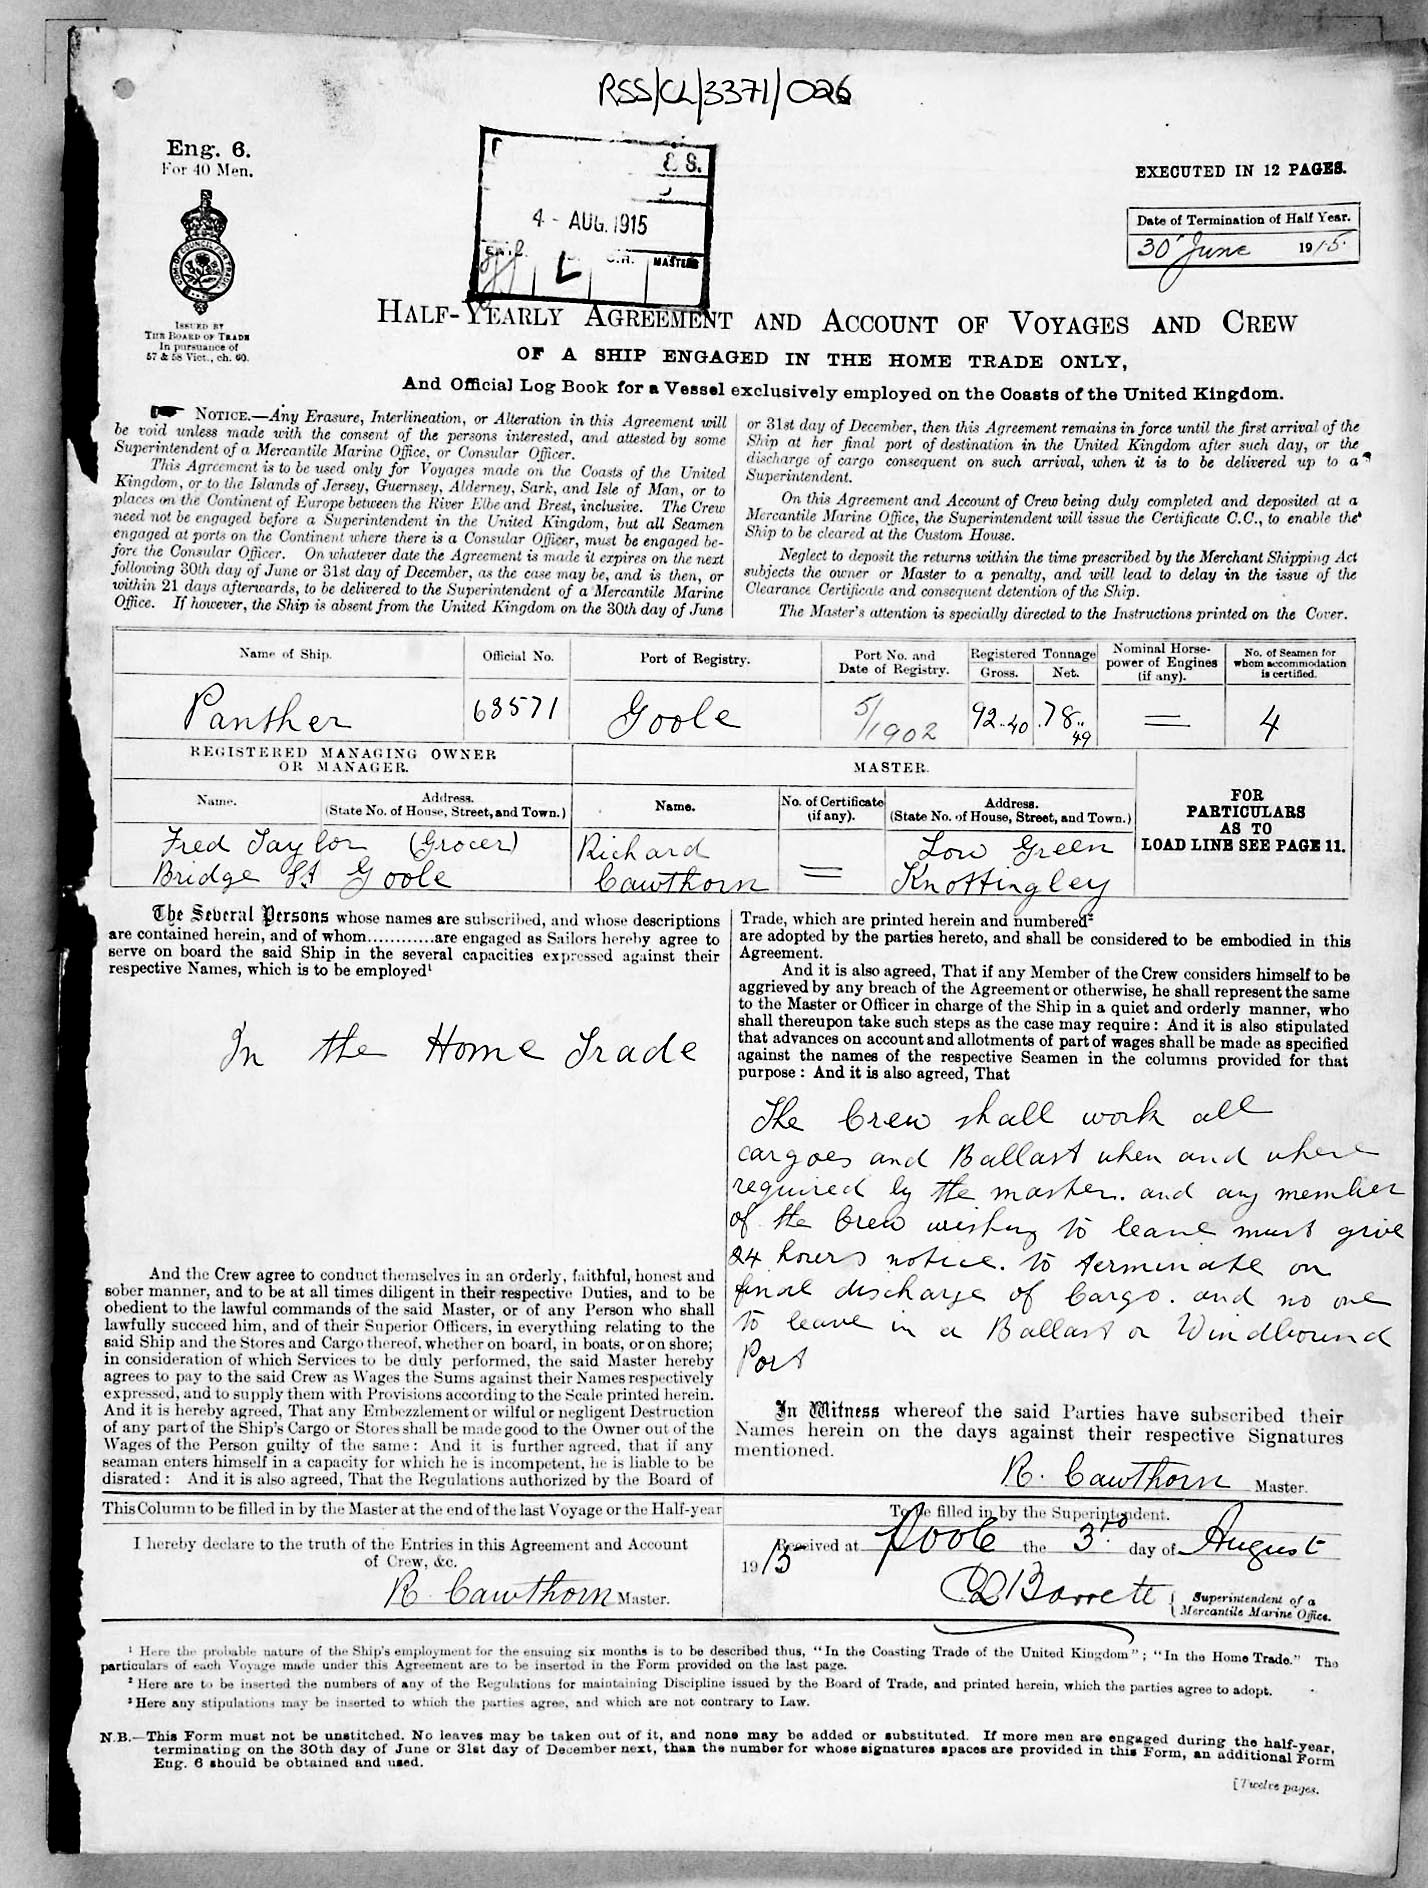 RSS/CL/3371/026
Eng. 6.
For 40 Men.
ISSUED BY
THE BOARD OF TRADE
In pursuance of
57 & 58 Vict., ch. 60.
& S.
4 - AUG. 1915
MASTERS
EXECUTED IN 12 PAGES.
Date of Termination of Half Year.
30 June 1915.
HALF-YEARLY AGREEMENT AND ACCOUNT OF VOYAGES AND CREW
OF A SHIP ENGAGED IN THE HOME TRADE ONLY,
And Official Log Book for a Vessel exclusively employed on the Coasts of the United Kingdom.
NOTICE.—Any Erasure, Interlineation, or Alteration in this Agreement will
be void unless made with the consent of the persons interested, and attested by some
Superintendent of a Mercantile Marine Office, or Consular Officer.
This Agreement is to be used only for Voyages made on the Coasts of the United
Kingdom, or to the Islands of Jersey, Guernsey, Alderney, Sark, and Isle of Man, or to
places on the Continent of Europe between the River Elbe and Brest, inclusive. The Crew
need not be engaged before a Superintendent in the United Kingdom, but all Seamen
engaged at ports on the Continent where there is a Consular Officer, must be engaged be-
fore the Consular Officer. On whatever date the Agreement is made it expires on the next
following 30th day of June or 31st day of December, as the case may be, and is then, or
within 21 days afterwards, to be delivered to the Superintendent of a Mercantile Marine
Office. If however, the Ship is absent from the United Kingdom on the 30th day of June
or 31st day of December, then this Agreement remains in force until the first arrival of the
Ship at her final port of destination in the United Kingdom after such day, or the
discharge of cargo consequent on such arrival, when it is to be delivered up to a
Superintendent.
On this Agreement and Account of Crew being duly completed and deposited at a
Mercantile Marine Office, the Superintendent will issue the Certificate C.C., to enable the
Ship to be cleared at the Custom House.
Neglect to deposit the returns within the time prescribed by the Merchant Shipping Act
subjects the owner or Master to a penalty, and will lead to delay in the issue of the
Clearance Certificate and consequent detention of the Ship.
The Master's attention is specially directed to the Instructions printed on the Cover.
Name of Ship. Official No. Port of Registry. Port No. and Date of Registry. Registered Tonnage Gross. Net. Nominal Horse-power of Engines (if any). No. of Seamen for whom accommodation is certified.
Panther 63571 Goole 5/1902 92.40 78.49 = 4
REGISTERED MANAGING OWNER
OR MANAGER.
MASTER.
Name. Address. (State No. of House, Street, and Town.) Name. No. of Certificate (if any). Address. (State No. of House, Street, and Town.)
FOR
PARTICULARS
AS TO
LOAD LINE SEE PAGE 11.
Fred Taylor (Grocer) Richard Low Green
Bridge St Goole Cawthorn = Knottingley
The Several Persons whose names are subscribed, and whose descriptions
are contained herein, and of whom............are engaged as Sailors hereby agree to
serve on board the said Ship in the several capacities expressed against their
respective Names, which is to be employed¹
In the Home Trade
And the Crew agree to conduct themselves in an orderly, faithful, honest and
sober manner, and to be at all times diligent in their respective Duties, and to be
obedient to the lawful commands of the said Master, or of any Person who shall
lawfully succeed him, and of their Superior Officers, in everything relating to the
said Ship and the Stores and Cargo thereof, whether on board, in boats, or on shore;
in consideration of which Services to be duly performed, the said Master hereby
agrees to pay to the said Crew as Wages the Sums against their Names respectively
expressed, and to supply them with Provisions according to the Scale printed herein.
And it is hereby agreed, That any Embezzlement or wilful or negligent Destruction
of any part of the Ship's Cargo or Stores shall be made good to the Owner out of the
Wages of the Person guilty of the same: And it is further agreed, that if any
seaman enters himself in a capacity for which he is incompetent, he is liable to be
disrated: And it is also agreed, That the Regulations authorized by the Board of
Trade, which are printed herein and numbered²
are adopted by the parties hereto, and shall be considered to be embodied in this
Agreement.
And it is also agreed, That if any Member of the Crew considers himself to be
aggrieved by any breach of the Agreement or otherwise, he shall represent the same
to the Master or Officer in charge of the Ship in a quiet and orderly manner, who
shall thereupon take such steps as the case may require: And it is also stipulated
that advances on account and allotments of part of wages shall be made as specified
against the names of the respective Seamen in the columns provided for that
purpose: And it is also agreed, That
The Crew shall work all
cargoes and Ballast when and where
required by the master. and any member
of the Crew wishing to leave must give
24 hours notice. to terminate on
final discharge of Cargo. and no one
to leave in a Ballast or Windbound
Port
In Witness whereof the said Parties have subscribed their
Names herein on the days against their respective Signatures
mentioned.
R. Cawthorn Master.
This Column to be filled in by the Master at the end of the last Voyage or the Half-year
I hereby declare to the truth of the Entries in this Agreement and Account
of Crew, &c.
R. Cawthorn Master.
To be filled in by the Superintendent.
Received at Poole the 3rd day of August
1915
Barrett Superintendent of a
Mercantile Marine Office.
¹ Here the probable nature of the Ship's employment for the ensuing six months is to be described thus, "In the Coasting Trade of the United Kingdom"; "In the Home Trade." The
particulars of each Voyage made under this Agreement are to be inserted in the Form provided on the last page.
² Here are to be inserted the numbers of any of the Regulations for maintaining Discipline issued by the Board of Trade, and printed herein, which the parties agree to adopt.
³ Here any stipulations may be inserted to which the parties agree, and which are not contrary to Law.
N.B.—This Form must not be unstitched. No leaves may be taken out of it, and none may be added or substituted. If more men are engaged during the half-year,
terminating on the 30th day of June or 31st day of December next, than the number for whose signatures spaces are provided in this Form, an additional Form
Eng. 6 should be obtained and used.
[Twelve pages.